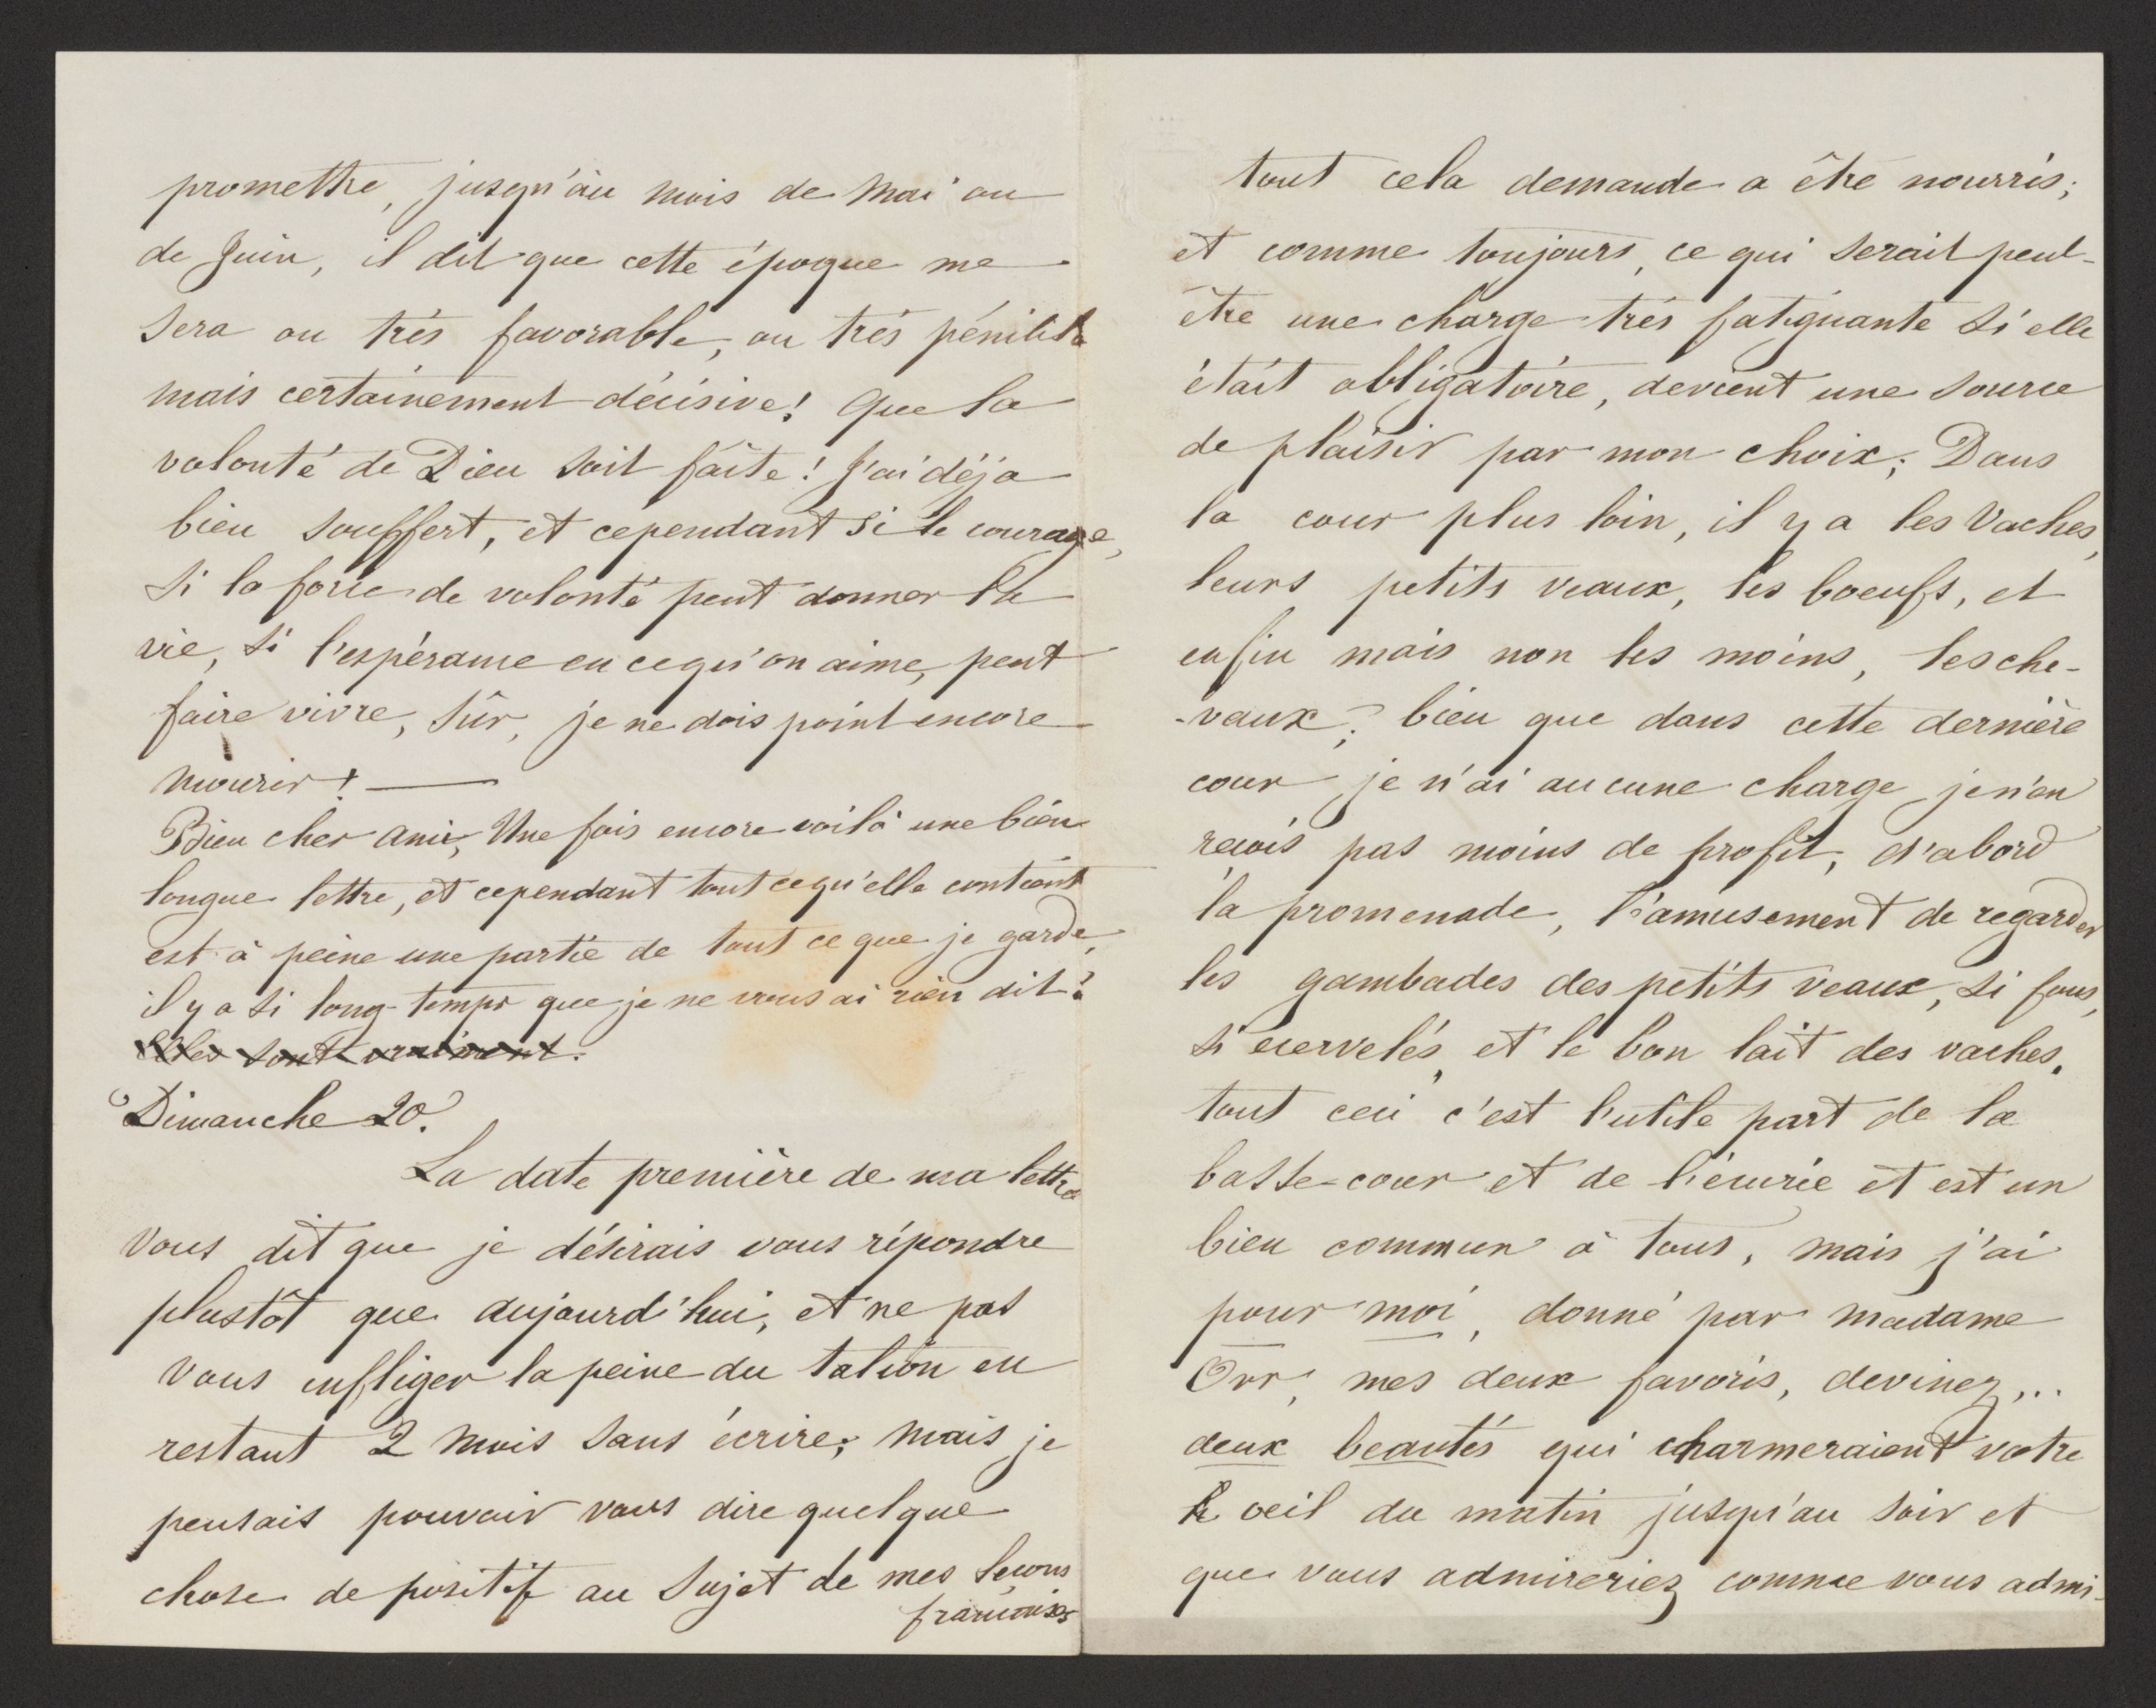 promettre, jusqu'au mois de Mai ou
de Juin, il dit que cette époque me
sera ou très favorable, ou très pénible
mais certainement décisive! Que la
volonté de Dieu soit faite! J'ai déja
bien souffert, et cependant si le courage,
si la force de volonté peut donner la
vie, si l'espérance en ce qu'on aime, peut
faire vivre, sûr, je ne dois point encore
mourir! —
Bien cher ami, Une fois encore voilà une bien
longue lettre, et cependant tout ce qu'elle contient
est à peine une partie de tout ce que je garde,
il y a si long-temps que je ne vous ai rien dit!
Elles sont vraiment.
Dimanche 20.
La date première de ma lettre
vous dit que je désirais vous répondre
plustôt que aujourd'hui, et ne pas
vous infliger la peine du talion en
restant 2 mois sans écrire; mais je
pensais pouvoir vous dire quelque
chose de positif au sujet de mes leçons
françaises
tout cela demande a être nourris;
et comme toujours, ce qui serait peut-
être une charge très fatiguante si elle
était obligatoire, devient une source
de plaisir par mon choix; Dans
la cour plus loin, il y a les Vaches,
leurs petits veaux, les boeufs, et
enfin mais non les moins, les che-
-vaux; bien que dans cette dernière
cour je n'ai aucune charge je n'en
reçois pas moins de profit, d'abord
la promenade, l'amusement de regarder
les gambades des petits veaux, si fous,
si ecervelés, et le bon lait des vaches.
tout ceci c'est l'utile part de la
basse-cour et de l'écurie et est un
bien commun à tous, mais j'ai
pour moi, donné par madame
Orr, mes deux favoris, devinez...
deux beautés qui charmeraient votre
oeil du matin jusqu'au soir et
que vous admireriez comme vous admi-